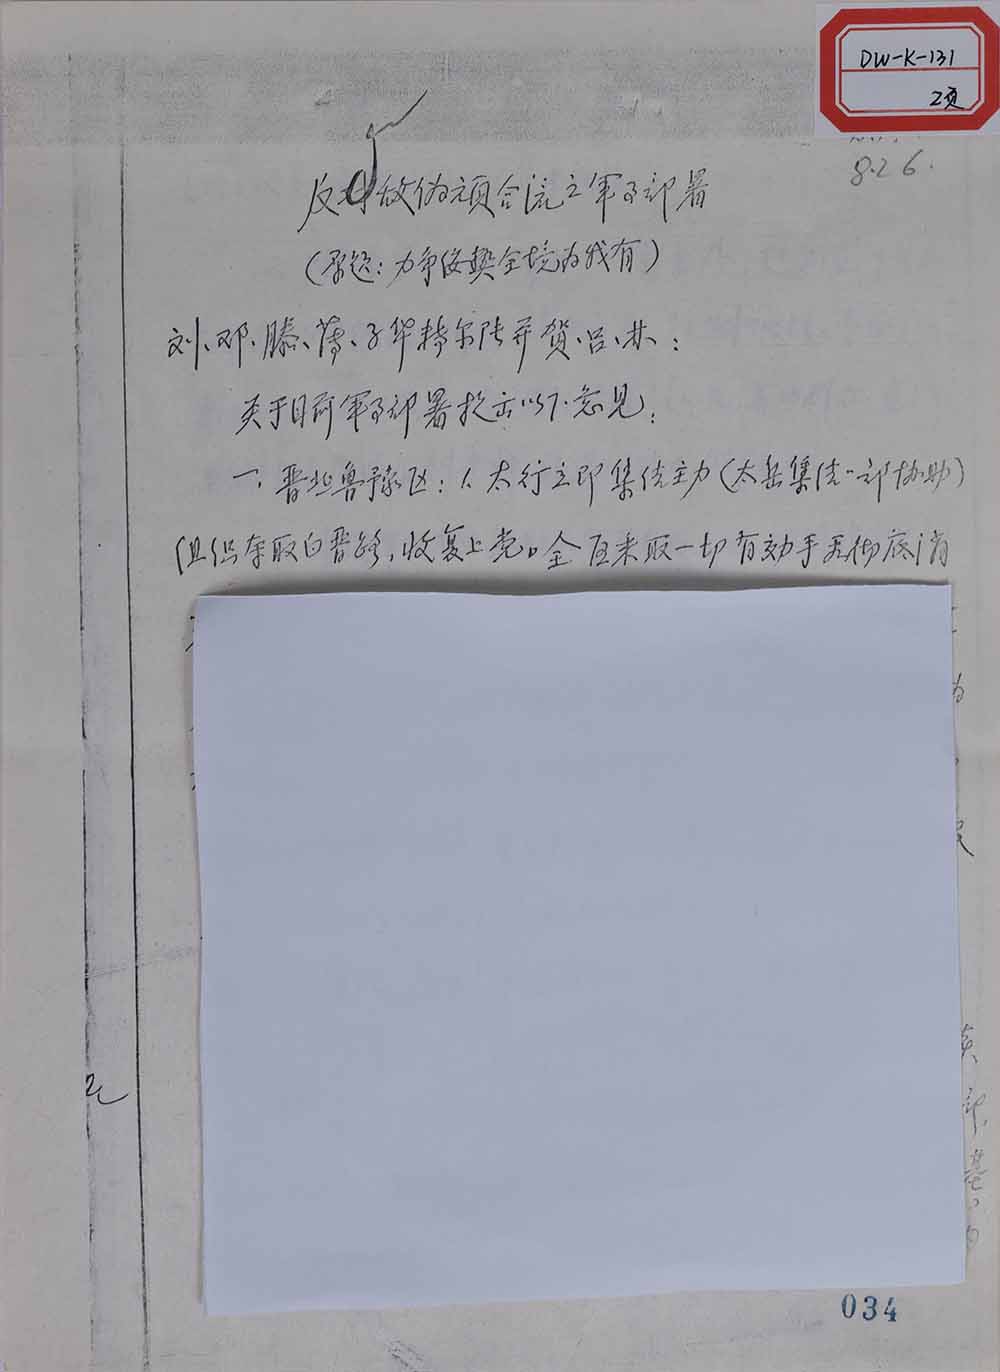 DW-K-131
2页
8.26.
反对敌伪顽合流之军事部署
(原题:力争绥热全境为我有)
刘、邓、滕、薄、子华特尔陆并贺、吕、林:
关于目前军事部署提出以下意见:
一、晋冀鲁豫区:1、太行立即集结主力(太岳集结一部协助)
组织夺取白晋路,收复上党。全区采取一切有效手段彻底消
为
034